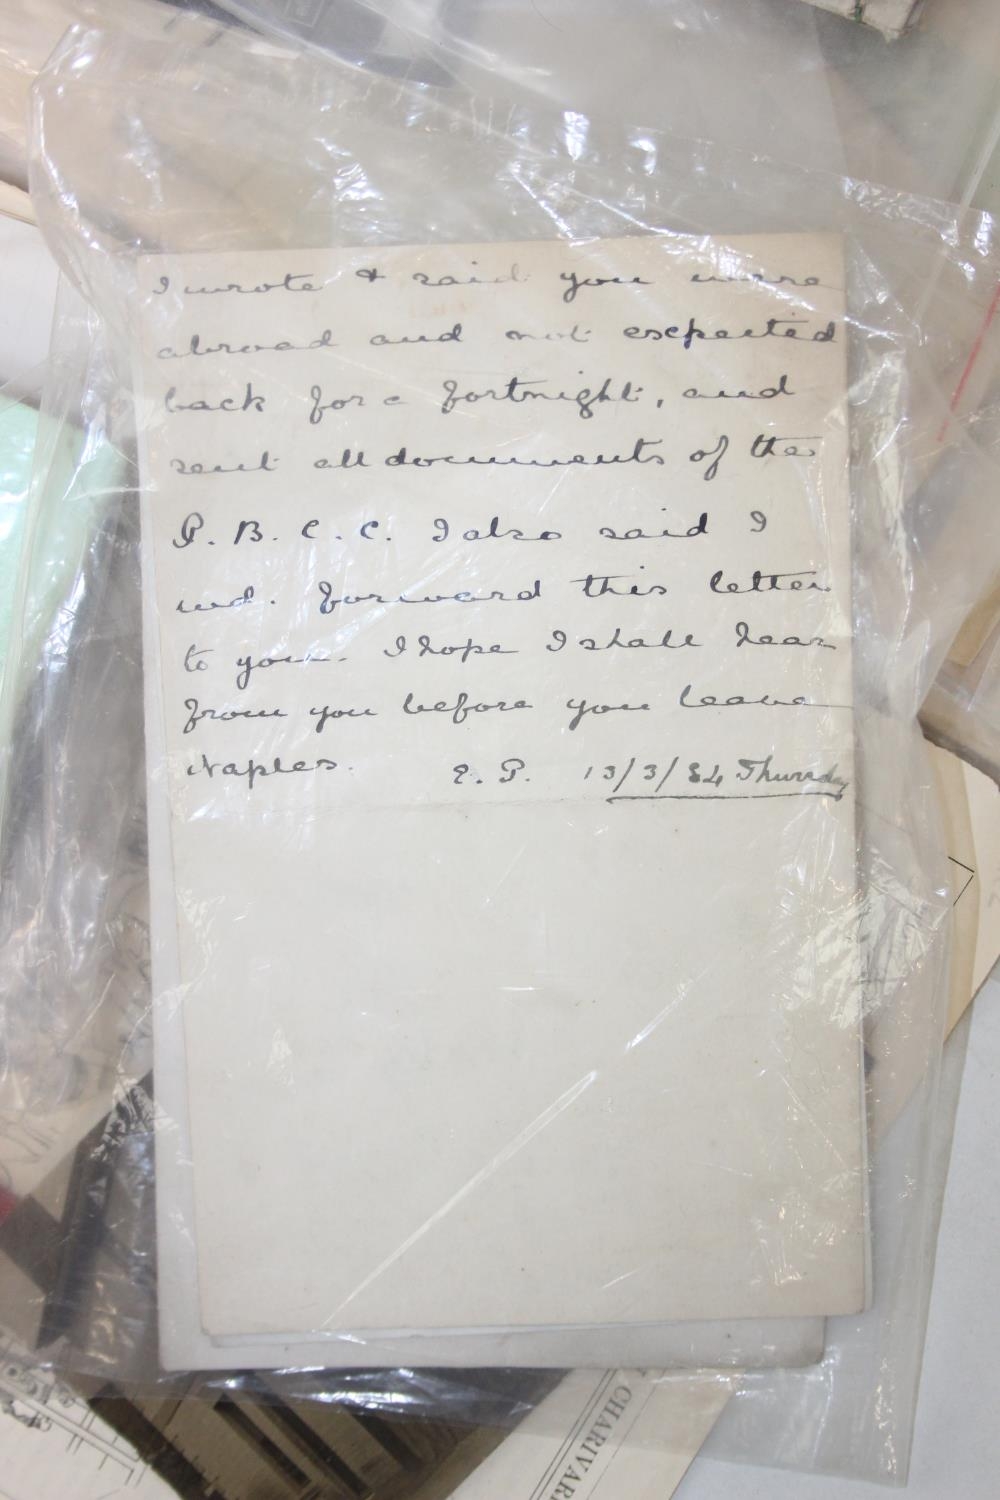 I wrote & said you were
abroad and not expected
back for a fortnight, and
sent all documents of the
P. B. C. C. I also said I
wd. forward this letter
to you. I hope I shall hear
from you before you leave
Naples. E. P. 13/3/84 Thursday
CHARIVARI